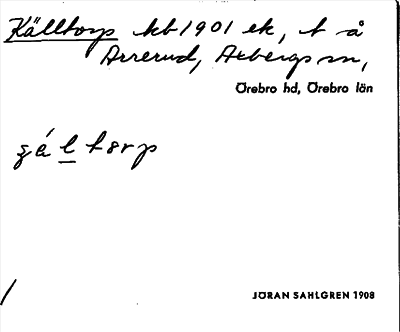 Källtorp kb 1901 ek, t å
Arrerud, Axbergs sn,
Örebro hd, Örebro län
ʂá l torp
/
JÖRAN SAHLGREN 1908